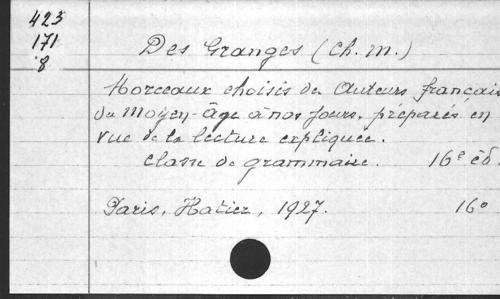 423
171
8
Des Granges (Ch. M.)
Morceaux choisis des Auteurs français
du Moyen-âge à nos jours, préparés en
vue de la lecture expliquée.
Classe de grammaire. 16e éd.
Paris, Hatier, 1927. 16o